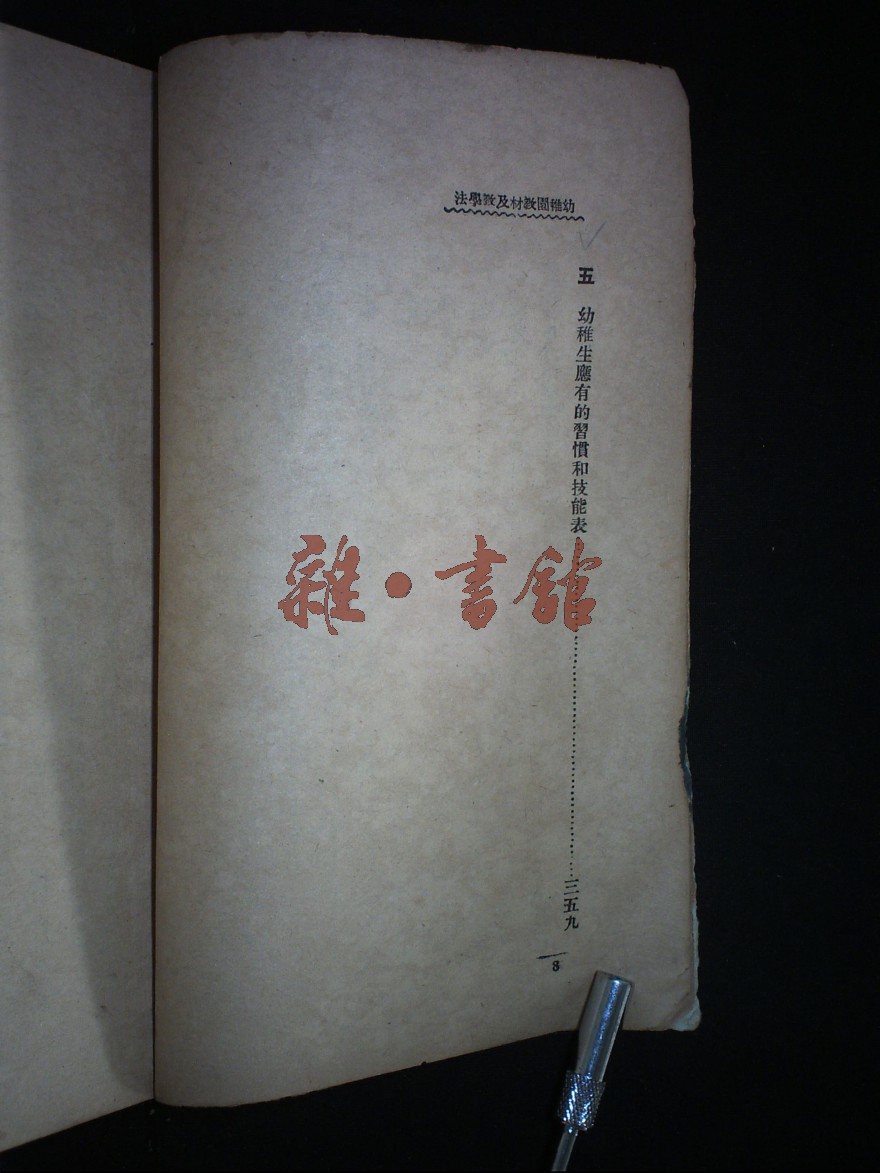 幼稚園教材及教學法
五 幼稚生應有的習慣和技能表……三五九
8
雜·書館